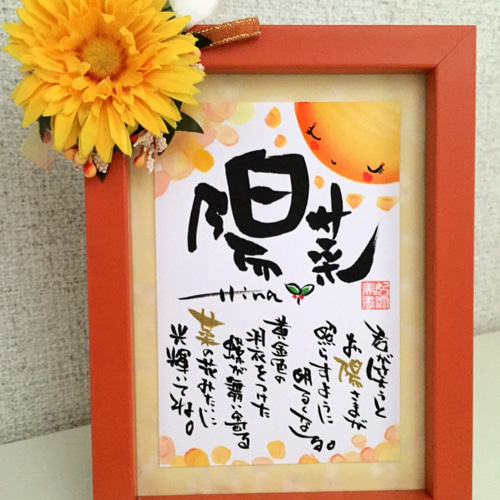 陽菜
Hina
君が笑うと
お陽さまが
照らすように
明るくなる。
黄金色の
花衣をつけた
蝶が舞い寄る
菜の花みたいに
光輝いてね。